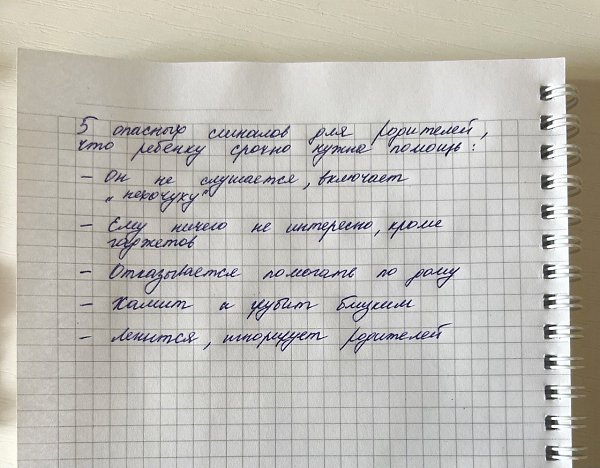 5 опасных сигналов для родителей,
что ребенку срочно нужна помощь:
- Он не слушается, включает
"нехочуху"
- Ему ничего не интересно, кроме
гаджетов
- Отказывается помогать по дому
- Хамит и грубит близким
- Ленится, игнорирует родителей